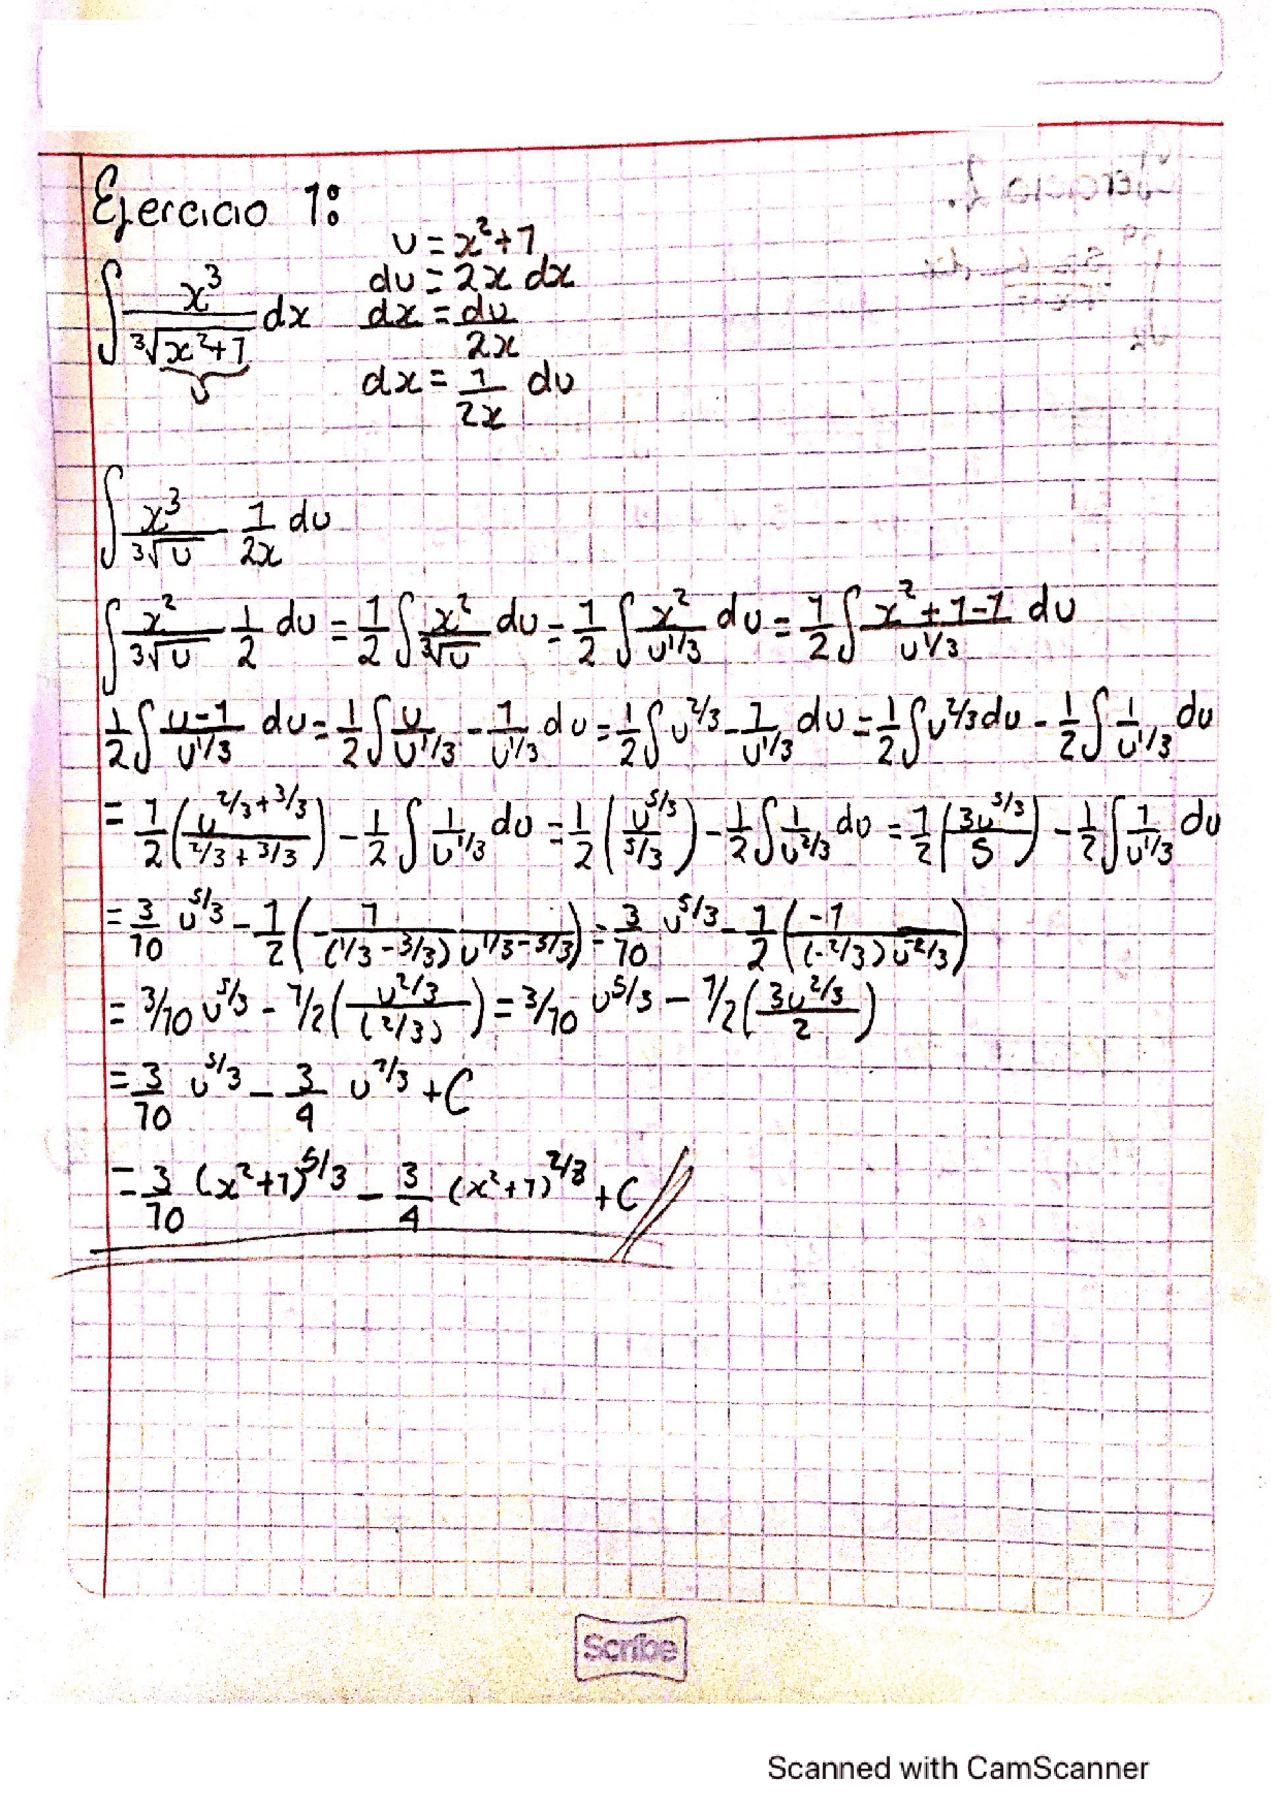 Ejercicio 1:
∫ x³/∛(x²+1) dx
u
u = x²+1
du = 2x dx
dx = du/2x
dx = 1/2x du
∫ x³/∛u 1/2x du
∫ x²/∛u 1/2 du = 1/2 ∫ x²/∛u du = 1/2 ∫ x²/u^1/3 du = 1/2 ∫ x²+1-1/u^1/3 du
1/2 ∫ u-1/u^1/3 du = 1/2 ∫ u/u^1/3 - 1/u^1/3 du = 1/2 ∫ u^2/3 - 1/u^1/3 du = 1/2 ∫ u^2/3 du - 1/2 ∫ 1/u^1/3 du
= 1/2 (u^2/3+3/3 / 2/3+3/3) - 1/2 ∫ 1/u^1/3 du = 1/2 (u^5/3 / 5/3) - 1/2 ∫ 1/u^2/3 du = 1/2 (3u^5/3 / 5) - 1/2 ∫ 1/u^1/3 du
= 3/10 u^5/3 - 1/2 (- 1/(1/3-3/3) u^1/3-3/3) = 3/10 u^5/3 - 1/2 (-1/(-2/3) u^-2/3)
= 3/10 u^5/3 - 1/2 (u^2/3 / (2/3)) = 3/10 u^5/3 - 1/2 (3u^2/3 / 2)
= 3/10 u^5/3 - 3/4 u^2/3 + C
= 3/10 (x²+1)^5/3 - 3/4 (x²+1)^2/3 + C
Scribe
Scanned with CamScanner